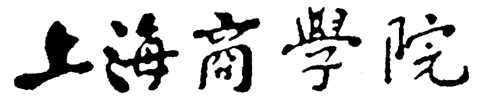 上海商學院